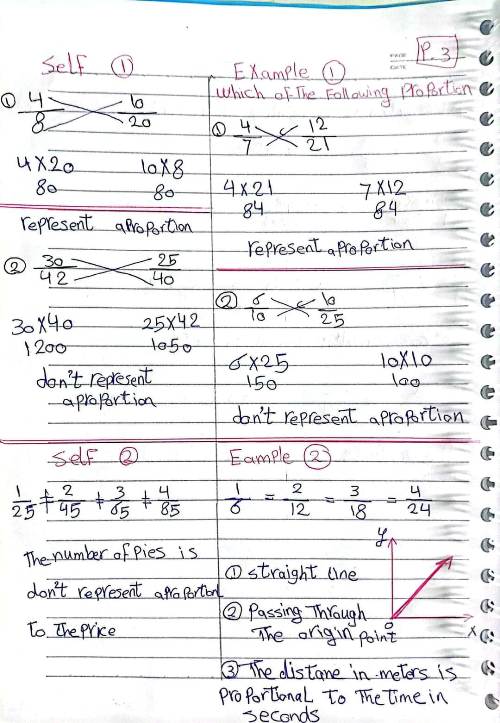 P.3
Self ①
① 4/8 10/20
4X20 10X8
80 80
represent aproportion
② 30/42 25/40
30X40 25X42
1200 1050
don't represent
aproportion
Example ①
which of The Following Proportion
① 4/7 12/21
4X21 7X12
84 84
represent aproportion
② 6/10 10/25
6X25 10X10
150 100
don't represent aproportion
Self ②
1/25 ≠ 2/45 ≠ 3/65 ≠ 4/85
The number of Pies is
don't represent aproportion
To The Price
Eample ②
1/6 = 2/12 = 3/18 = 4/24
① straight line
② Passing Through
The origin Point
y
o
x
③ The distane in meters is
proportional to The time in
seconds